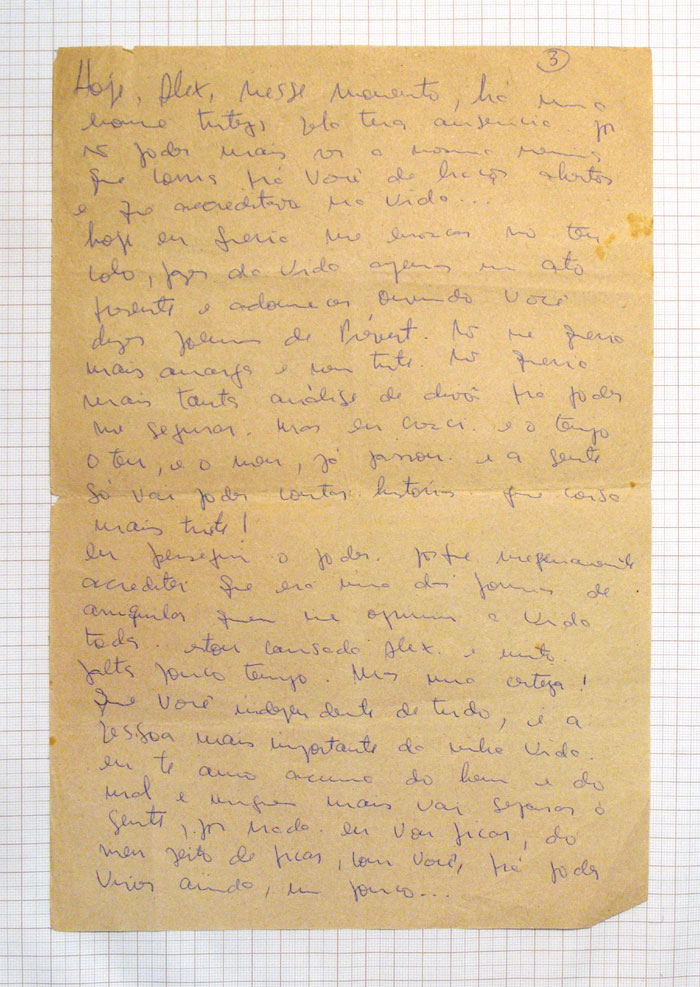 3
Hoje, Alex, nesse momento, há uma
enorme tristeza pela tua ausência. por
ñ poder mais ver a mesma menina
que corria prá você de braços abertos
e que acreditava na vida...
hoje eu queria me enroscar no teu
colo, fazer da vida apenas um ato
presente e adormecer ouvindo você
dizer poemas de Prévert. ñ me quero
mais amarga e nem triste. ñ quero
mais tanta análise de divã prá poder
me segurar. mas eu cresci. e o tempo
o teu, e o meu, já passou. e a gente
só vai poder contar histórias. que coisa
mais triste!
eu persegui o poder. porque ingenuamente
acreditei que era uma das formas de
aniquilar quem me oprimiu a vida
toda. estou cansada Alex. e sinto
falta pouco tempo. Mas uma certeza!
que você independente de tudo, é a
pessoa mais importante da minha vida.
eu te amo acima do bem e do
mal e ninguém mais vai separar a
gente, por nada. eu vou ficar, do
meu jeito de ficar, com você, prá poder
viver ainda, um pouco...